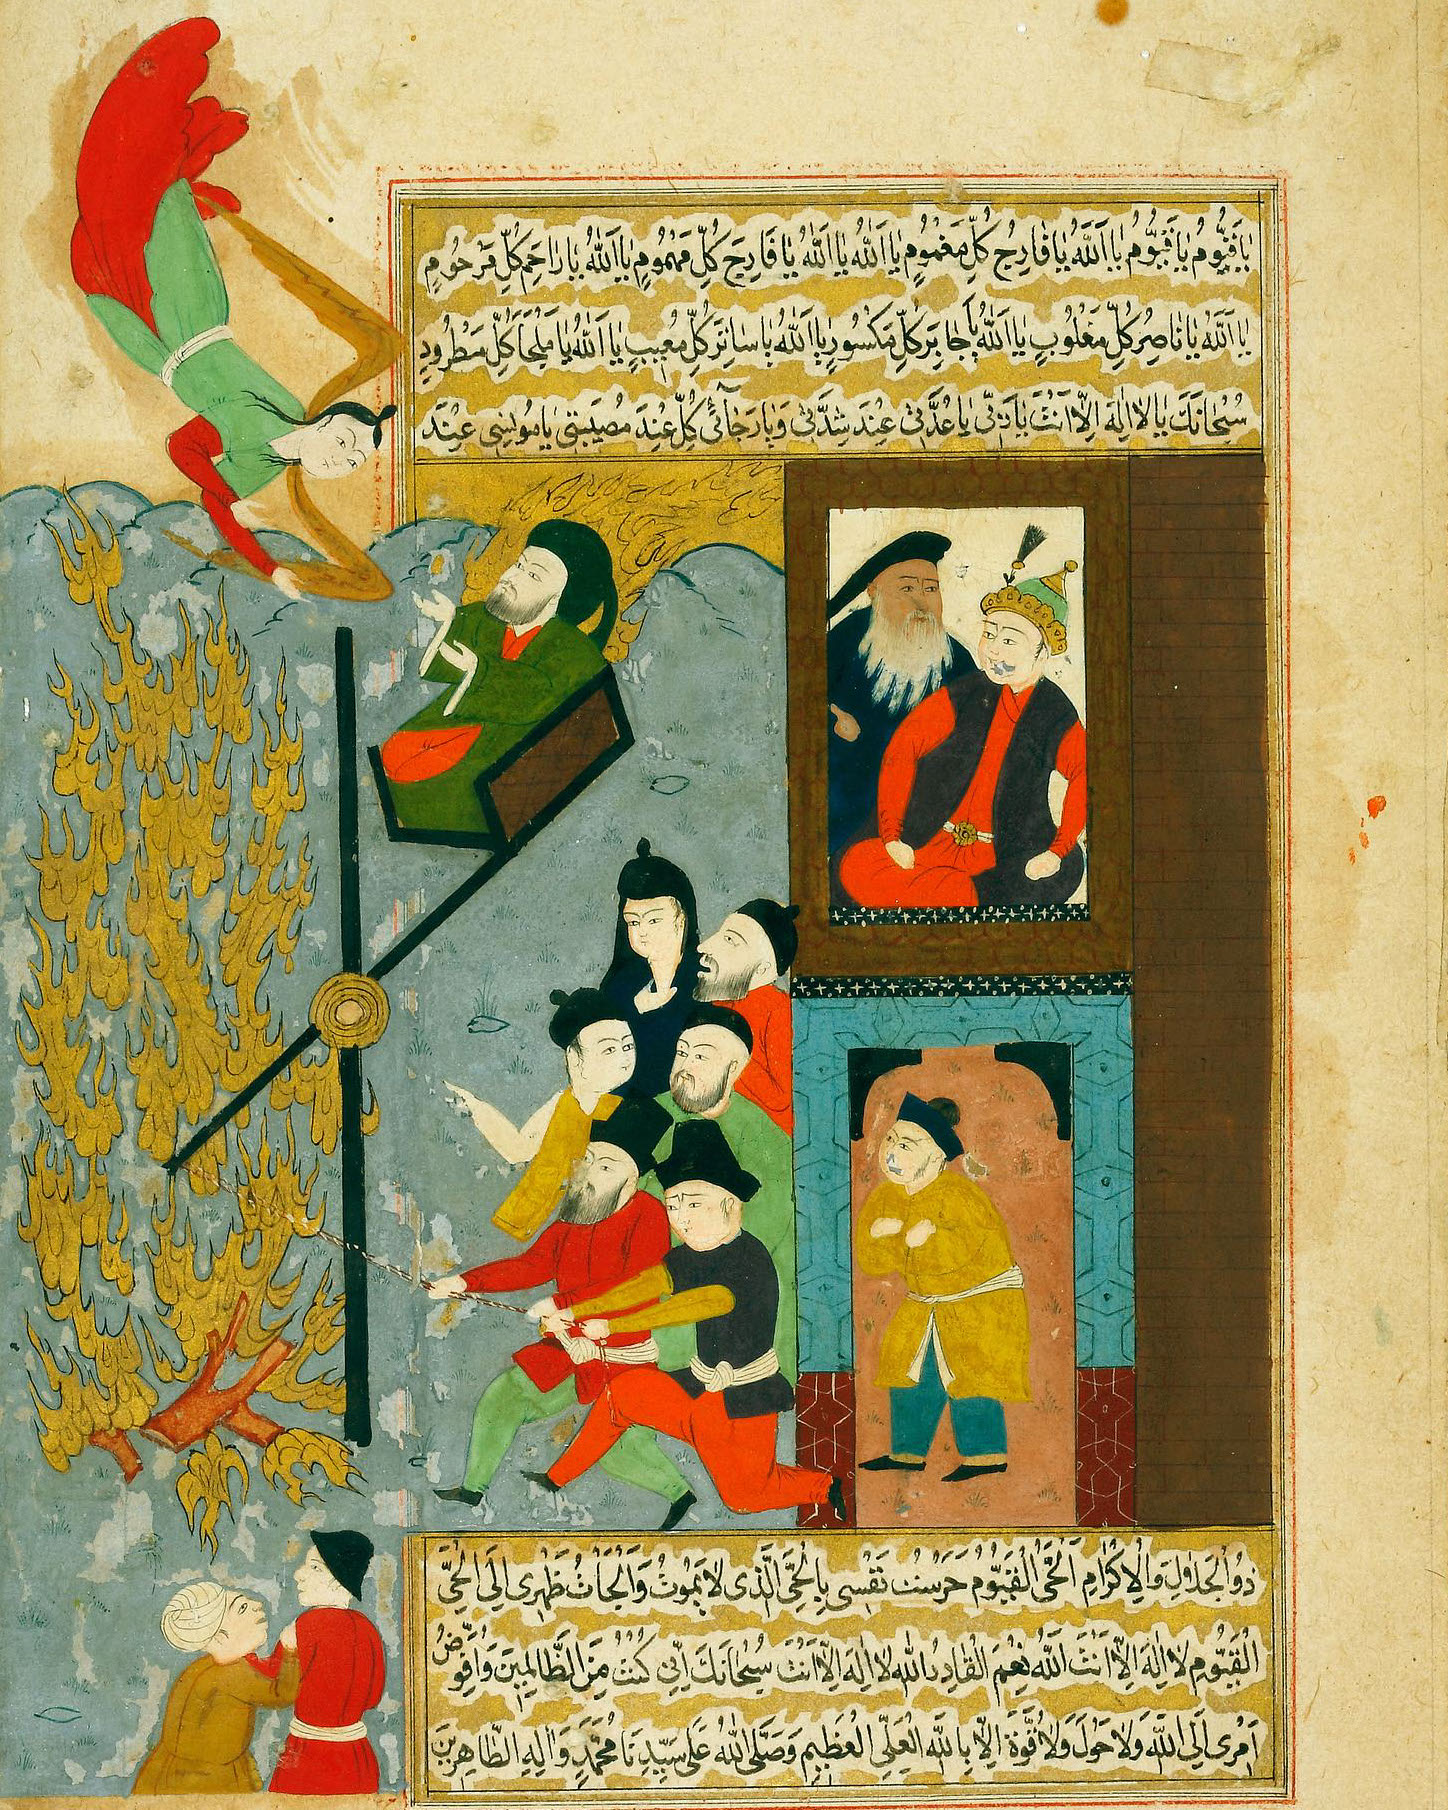 يَا قَيُّومُ يَا قَيُّومُ يَا اَللّٰهُ يَا فَارِجَ كُلِّ مَغْمُومٍ يَا اَللّٰهُ يَا اَللّٰهُ يَا فَارِجَ كُلِّ مَهْمُومٍ يَا اَللّٰهُ يَا رَاحِمَ كُلِّ مَرْحُومٍ
يَا اَللّٰهُ يَا نَاصِرَ كُلِّ مَغْلُوبٍ يَا اَللّٰهُ يَا جَابِرَ كُلِّ مَكْسُورٍ يَا اَللّٰهُ يَا سَاتِرَ كُلِّ مَعْيُبٍ يَا اَللّٰهُ يَا مَلْجَاَ كُلِّ مَطْرُودٍ
سُبْحَانَكَ يَا لَا اِلٰهَ اِلَّا اَنْتَ يَا رَبِّى يَا عُدَّتِى عِنْدَ شِدَّتِى وَ يَا رَجَائِى كُلِّ عِنْدَ مُصِيبَتِى يَا مُونِسِى عِنْدَ
ذُو الْجَلَالِ وَالْاِكْرَامِ اَلْحَىُّ الْقَيُّومُ حَرَسْتُ نَفْسِى بِالْحَىِّ الَّذِى لَا يَمُوتُ وَاَلْجَأْتُ ظَهْرِى اِلَى الْحَىِّ
الْقَيُّومِ لَا اِلٰهَ اِلَّا اَنْتَ اَللّٰهُ نِعْمَ الْقَادِرُ اَللّٰهُ لَا اِلٰهَ اِلَّا اَنْتَ سُبْحَانَكَ اِنِّى كُنْتُ مِنَ الظَّالِمِينَ وَاُفَوِّضُ
اَمْرِى اِلَى اللّٰهِ وَلَا حَوْلَ وَلَا قُوَّةَ اِلَّا بِاللّٰهِ الْعَلِىِّ الْعَظِيمِ وَصَلَّى اللّٰهُ عَلَى سَيِّدِنَا مُحَمَّدٍ وَاٰلِهِ الطَّاهِرِينَ